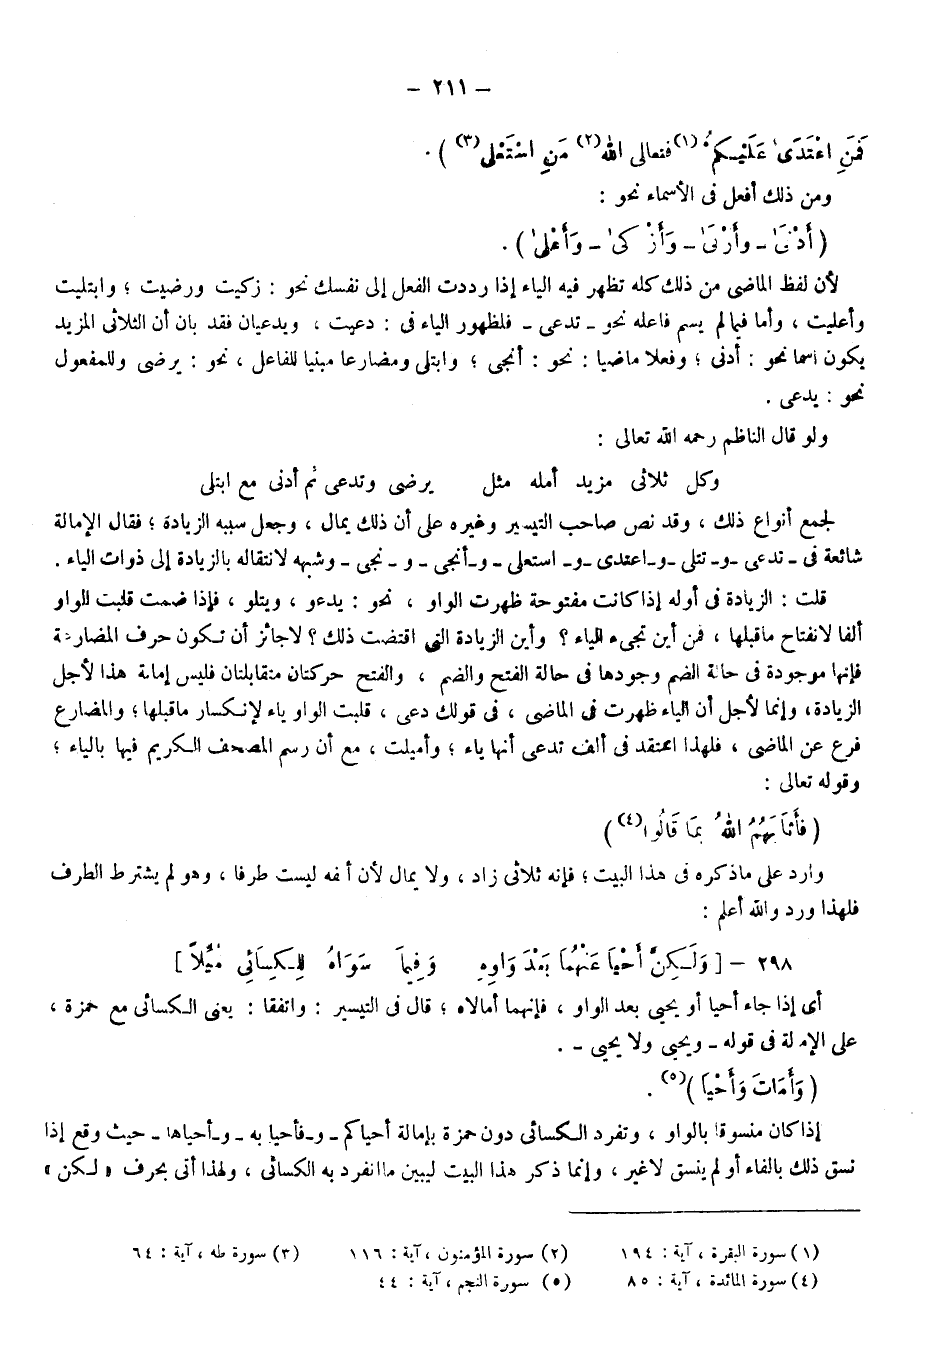 – ٢١١ –
فَمَنِ اعْتَدَىٰ عَلَيْكُمْ(١) فتعالى الله(٢) مَنِ اسْتَعْلَى(٣) ) .
ومن ذلك أفعل فى الأسماء نحو :
( أَدْنَىٰ – وأَرْبَىٰ – وَأَزْكَىٰ – وَأَعْلَىٰ ) .
لأن لفظ الماضى من ذلك كله تظهر فيه الياء إذا رددت الفعل إلى نفسك نحو : زكيت ورضيت ؛ وابتليت
وأعليت ، وأما فيما لم يسم فاعله نحو – تدعى – فلظهور الياء فى : دعيت ، ويدعيان فقد بان أن الثلاثى المزيد
يكون اسما نحو : أدنى ؛ وفعلا ماضيا : نحو : أنجى ؛ وابتلى ومضارعا مبنيا للفاعل ، نحو : يرضى وللمفعول
نحو : يدعى .
ولو قال الناظم رحمه الله تعالى :
وكل ثلاثى مزيد أمله مثل يرضى وتدعى ثم أدنى مع ابتلى
لجمع أنواع ذلك ، وقد نص صاحب التيسير وغيره على أن ذلك يمال ، وجعل سببه الزيادة ؛ فقال الإمالة
شائعة فى – تدعى –و– تتلى –و– اعتدى –و– استعلى – و–أنجى – و – نجى – وشبهه لانتقاله بالزيادة إلى ذوات الياء .
قلت : الزيادة فى أوله إذا كانت مفتوحة ظهرت الواو ، نحو : يدعو ، ويتلو ، فإذا ضمت قلبت الواو
ألفا لانفتاح ماقبلها ، فمن أين تجىء الياء ؟ وأين الزيادة التى اقتضت ذلك ؟ لاجائز أن تكون حرف المضارعة
فإنها موجودة فى حالة الضم وجودها فى حالة الفتح والضم ، والفتح حركتان متقابلتان فليس إمالة هذا لأجل
الزيادة، وإنما لأجل أن الياء ظهرت فى الماضى ، فى قولك دعى ، قلبت الواو ياء لانكسار ماقبلها؛ والمضارع
فرع عن الماضى ، فلهذا اعتقد فى ألف تدعى أنها ياء ؛ وأميلت ، مع أن رسم المصحف الكريم فيها بالياء ؛
وقوله تعالى :
( فَأَثَابَهُمُ اللهُ بِمَا قَالُوا(٤) )
وارد على ماذكره فى هذا البيت ؛ فإنه ثلاثى زاد ، ولا يمال لأن ألفه ليست طرفا ، وهو لم يشترط الطرف
فلهذا ورد والله أعلم :
٢٩٨ – [ وَلَـكِنَّ أَحْيَا عَنْهُمَا بَعْدَ وَاوِهِ وَفِيمَا سَوَاهُ لِلْـكِسَائِي مُيِّلاَ ]
أى إذا جاء أحيا أو يحيى بعد الواو ، فإنهما أمالاه ؛ قال فى التيسير : واتفقا : يعنى الـكسائى مع حمزة ،
على الإمالة فى قوله – ويحيى ولا يحيى – .
( وَأَمَاتَ وَأَحْيَا )(٥) .
إذا كان منسوقا بالواو ، وتفرد الـكسائى دون حمزة بإمالة أحياكم – و–فأحيا به – و–أحياها – حيث وقع إذا
نسق ذلك بالفاء أو لم ينسق لاغير ، وإنما ذكر هذا البيت ليبين ماانفرد به الكسائى ، ولهذا أتى بحرف « لـكن »
(١) سورة البقرة ، آية : ١٩٤ (٢) سورة المؤمنون ، آية : ١١٦ (٣) سورة طه ، آية : ٦٤
(٤) سورة المائدة ، آية : ٨٥ (٥) سورة النجم ، آية : ٤٤